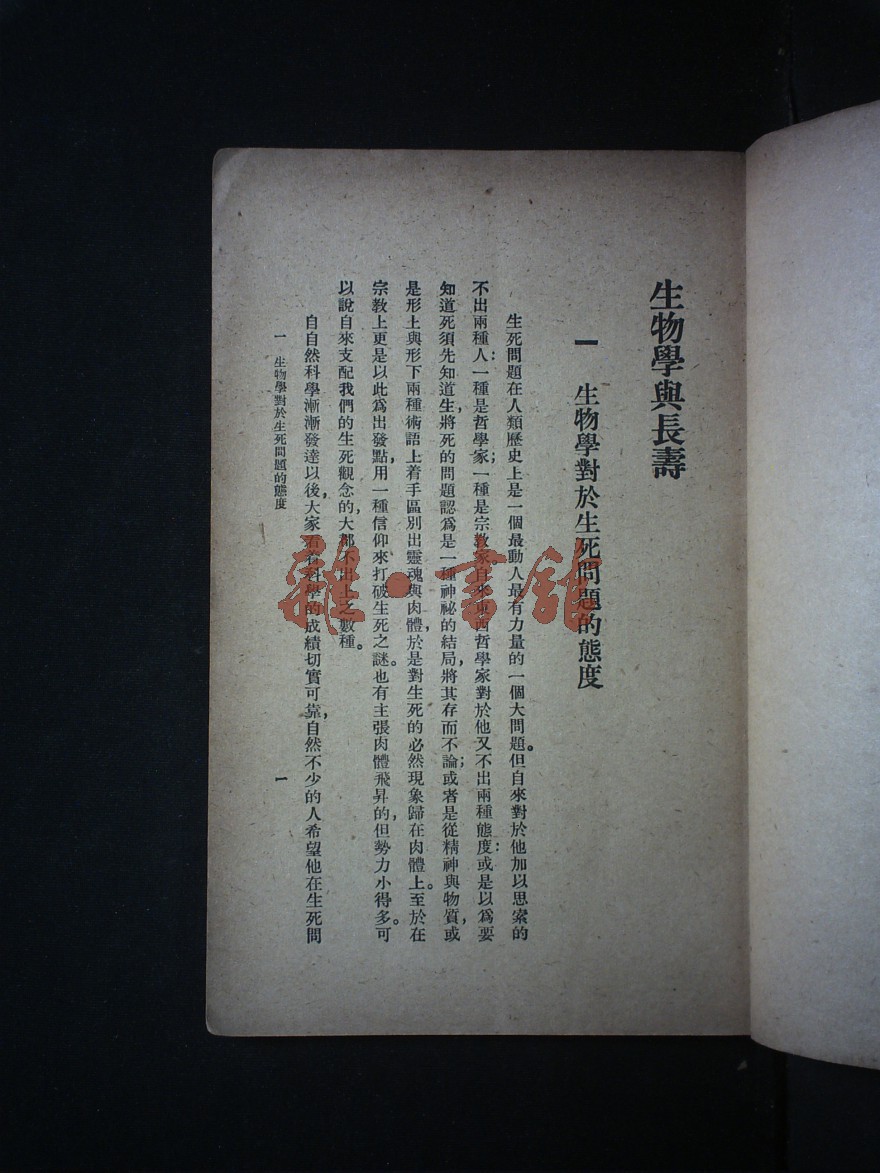 生物學與長壽
一　生物學對於生死問題的態度
生死問題在人類歷史上是一個最動人最有力量的一個大問題。但自來對於他加以思索的
不出兩種人：一種是哲學家；一種是宗教家自來東西哲學家對於他又不出兩種態度：或是以爲要
知道死須先知道生，將死的問題認爲是一種神祕的結局，將其存而不論；或者是從精神與物質，或
是形上與形下兩種術語上着手區別出靈魂與肉體，於是對生死的必然現象歸在肉體上。至於在
宗教上更是以此爲出發點，用一種信仰來打破生死之謎。也有主張肉體飛昇的，但勢力小得多。可
以說自來支配我們的生死觀念的，大都不出上之數種。
自自然科學漸漸發達以後，大家看着科學的成績切實可靠，自然不少的人希望他在生死問
一　生物學對於生死問題的態度
一
雜·書館